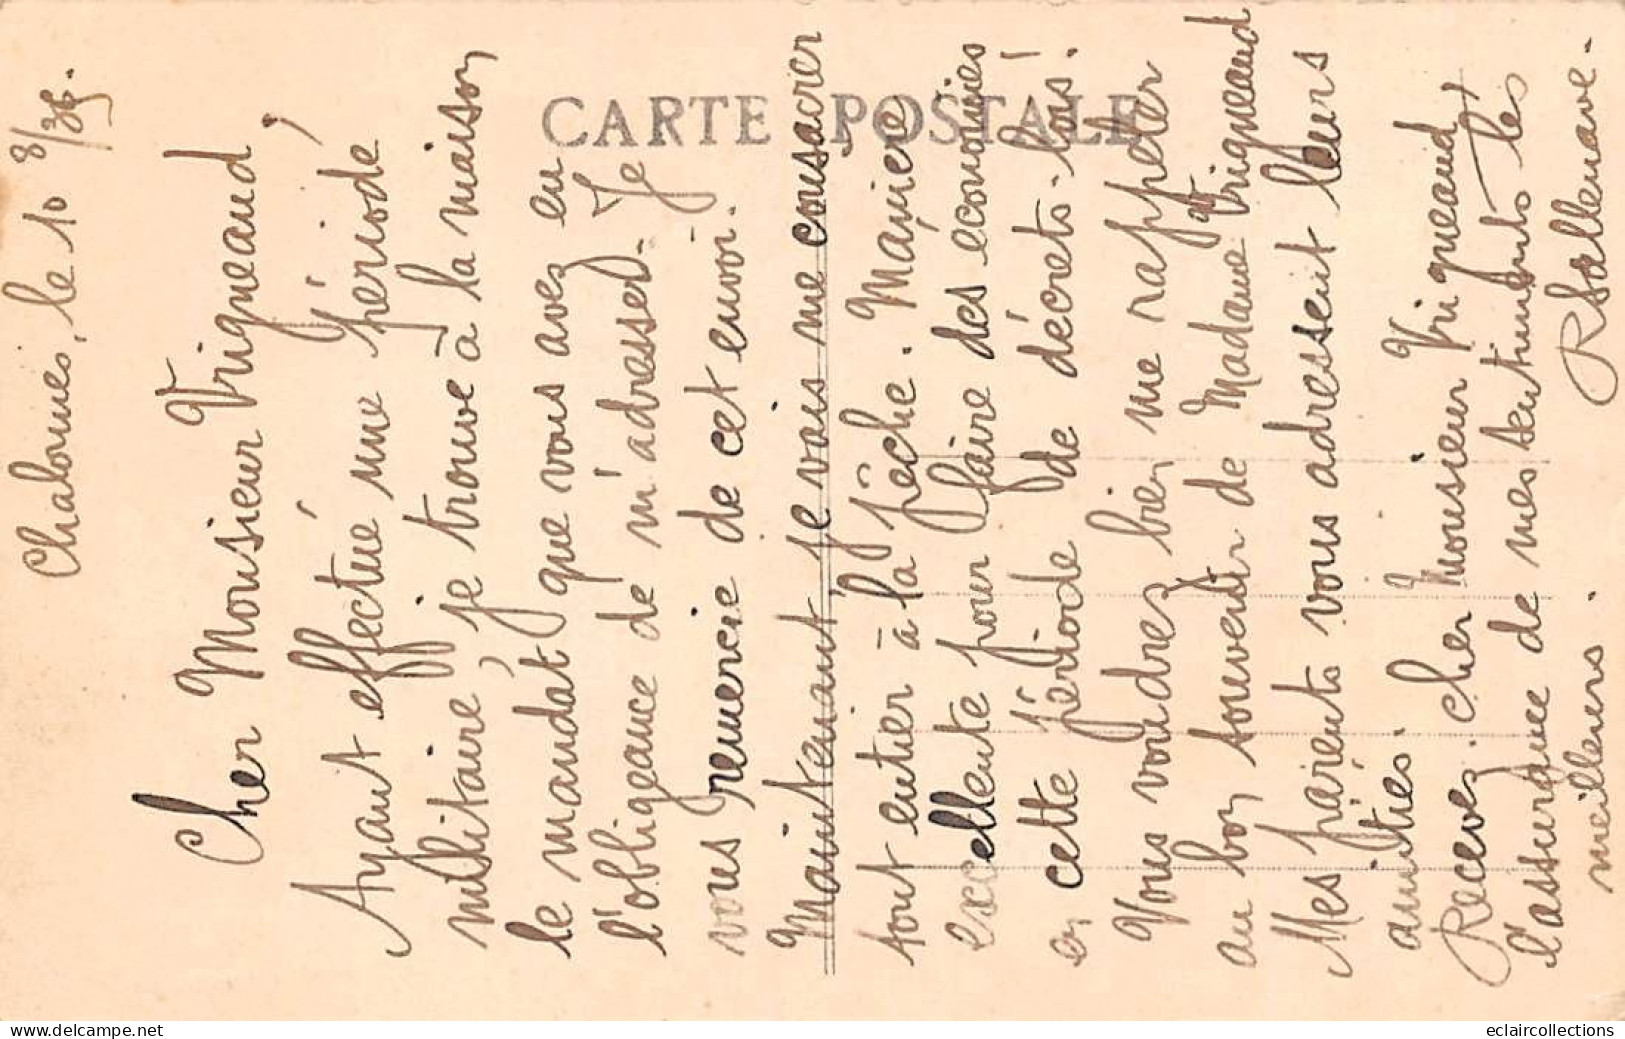 CARTE POSTALE
Chalonnes, le 10 8/35.
Cher Monsieur Vrigneaud,
Ayant effectué une période
militaire, je trouve à la maison
le mandat que vous avez eu
l'obligeance de m'adresser. Je
vous remercie de cet envoi.
Maintenant, je vais me consacrer
tout entier à la pêche. Manière
excellente pour faire des économies
en cette période de décrets-lois!
Vous voudrez bien me rappeler
au bon souvenir de Madame Vrigneaud
Mes parents vous adressent leurs
amitiés.
Recevez, cher Monsieur Vrigneaud
l'assurance de mes sentiments les
meilleurs.
www.delcampe.net
eclaircollections